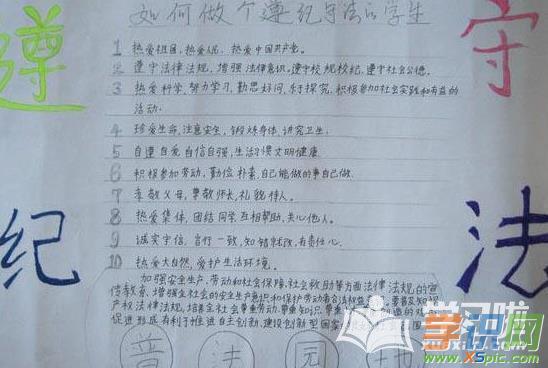 如何做个遵纪守法的学生
遵
守
纪
法
1 热爱祖国,热爱人民,热爱中国共产党。
2 遵守法律法规,增强法律意识。遵守校规校纪,遵守社会公德。
3 热爱科学,努力学习,勤思好问,乐于探究,积极参加社会实践和有益的
活动。
4 珍爱生命,注意安全,锻炼身体,讲究卫生。
5 自尊自爱,自信自强,生活习惯文明健康。
6 积极参加劳动,勤俭朴素,自己能做的事自己做。
7 孝敬父母,尊敬师长,礼貌待人。
8 热爱集体,团结同学,互相帮助,关心他人。
9 诚实守信,言行一致,知错就改,有责任心。
10 热爱大自然,爱护生活环境。
加强安全生产、劳动和社会保障、社会救助等方面法律法规的宣
传教育,增强全社会的安全生产意识和保护劳动者合法权益
产权法律法规,培养全社会尊重劳动、尊重知识、尊重
促进形成有利于推进自主创新、建设创新型国家
普 法 园 地
学习啦
学科网
www.xspic.com